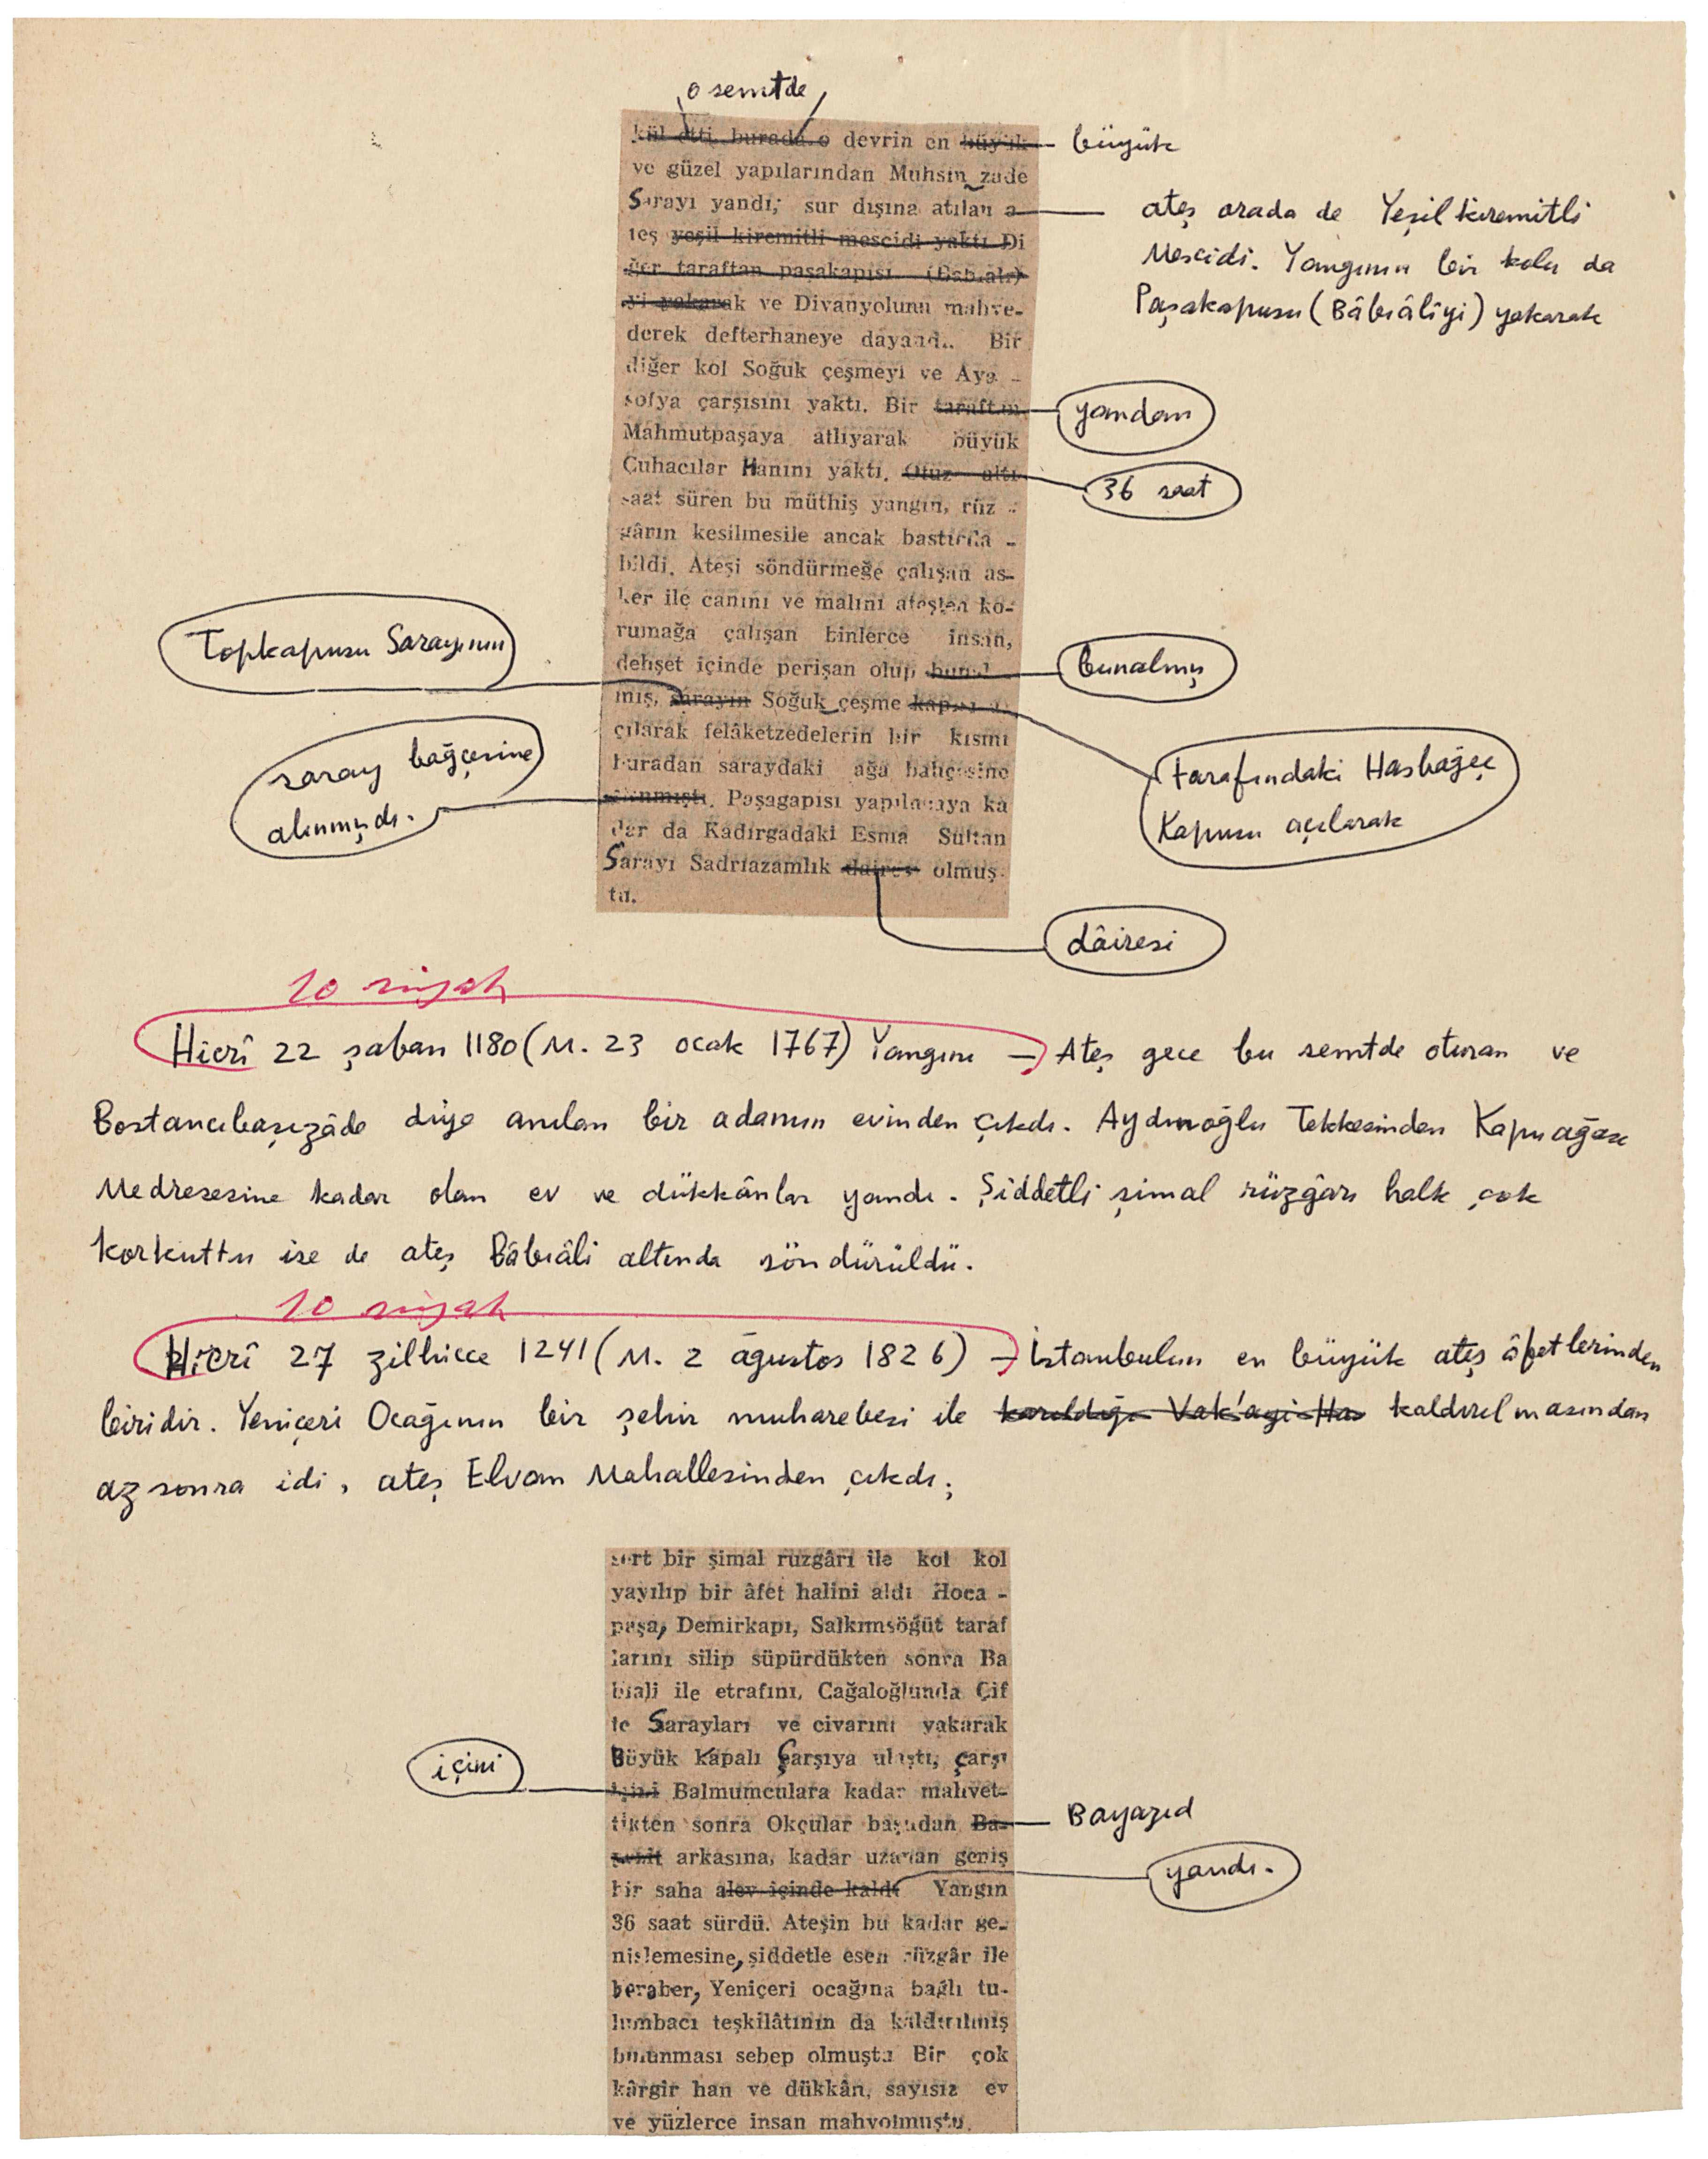 o semtde
kül etti burada o devrin en büyük
büyük
ve güzel yapılarından Muhsin zade
Sarayı yandı; sur dışına atılan a
ateş arada de Yeşil kiremitli
teş yeşil kiremitli mescidi yaktı Di
Mescidi. Yangının bir kolu da
ğer taraftan paşakapısı (Babıali)
Paşakapusu (Bâbıâlîyi) yakarak
yi yakarak ve Divanyolunu mahve-
derek defterhaneye dayandı. Bir
diğer kol Soğuk çeşmeyi ve Aya -
sofya çarşısını yaktı. Bir taraftan
yandan
Mahmutpaşaya atlıyarak büyük
Çuhacılar Hanını yaktı. Otuz altı
36 saat
saat süren bu müthiş yangın, rüz -
gârın kesilmesile ancak bastırıla -
bildi. Ateşi söndürmeğe çalışan as-
ker ile canını ve malını ateşten ko-
rumağa çalışan binlerce insan,
Topkapusu Sarayının
dehşet içinde perişan olup bunal
bunalmış
mış, sarayın Soğuk çeşme kapısı a
çılarak felâketzedelerin bir kısmı
tarafındaki Hasbağçe
Kapusu açılarak
buradan saraydaki ağa bahçesine
saray bağçesine
alınmışdı.
alınmıştı. Paşagapısı yapılıncaya ka
dar da Kadırgadaki Esma Sultan
Sarayı Sadrıazamlık dairesi olmuş
tu.
dâiresi
10 siyah
Hicrî 22 şaban 1180 (M. 23 ocak 1767) Yangını — Ateş gece bu semtde oturan ve
Bostancıbaşızâde diye anılan bir adamın evinden çıkdı. Aydınoğlu Tekkesinden Kapuağası
Medresesine kadar olan ev ve dükkânlar yandı. Şiddetli şimal rüzgârı halk çok
korkuttu ise de ateş Bâbıâli altında söndürüldü.
10 siyah
Hicrî 27 zilhicce 1241 (M. 2 ağustos 1826) — İstanbulun en büyük ateş âfetlerinden
biridir. Yeniçeri Ocağının bir şehir muharebesi ile Vak'ayi Ha kaldırılmasından
az sonra idi, ateş Elvan Mahallesinden çıkdı;
sert bir şimal rüzgârı ile kol kol
yayılıp bir âfet halini aldı Hoca -
paşa, Demirkapı, Salkımsöğüt taraf
larını silip süpürdükten sonra Ba
bıali ile etrafını, Cağaloğlunda Çif
te Sarayları ve civarını yakarak
Büyük Kapalı Çarşıya ulaştı, çarşı
içini
içini Balmumculara kadar mahvet-
tikten sonra Okçular başından Ba-
Bayazıd
yazıt arkasına, kadar uzanan geniş
bir saha alev içinde kaldı Yangın
yandı.
36 saat sürdü. Ateşin bu kadar ge-
nişlemesine, şiddetle esen rüzgâr ile
beraber, Yeniçeri ocağına bağlı tu-
lumbacı teşkilâtının da kaldırılmış
bulunması sebep olmuştu Bir çok
kârgir han ve dükkân, sayısız ev
ve yüzlerce insan mahvolmuştu.